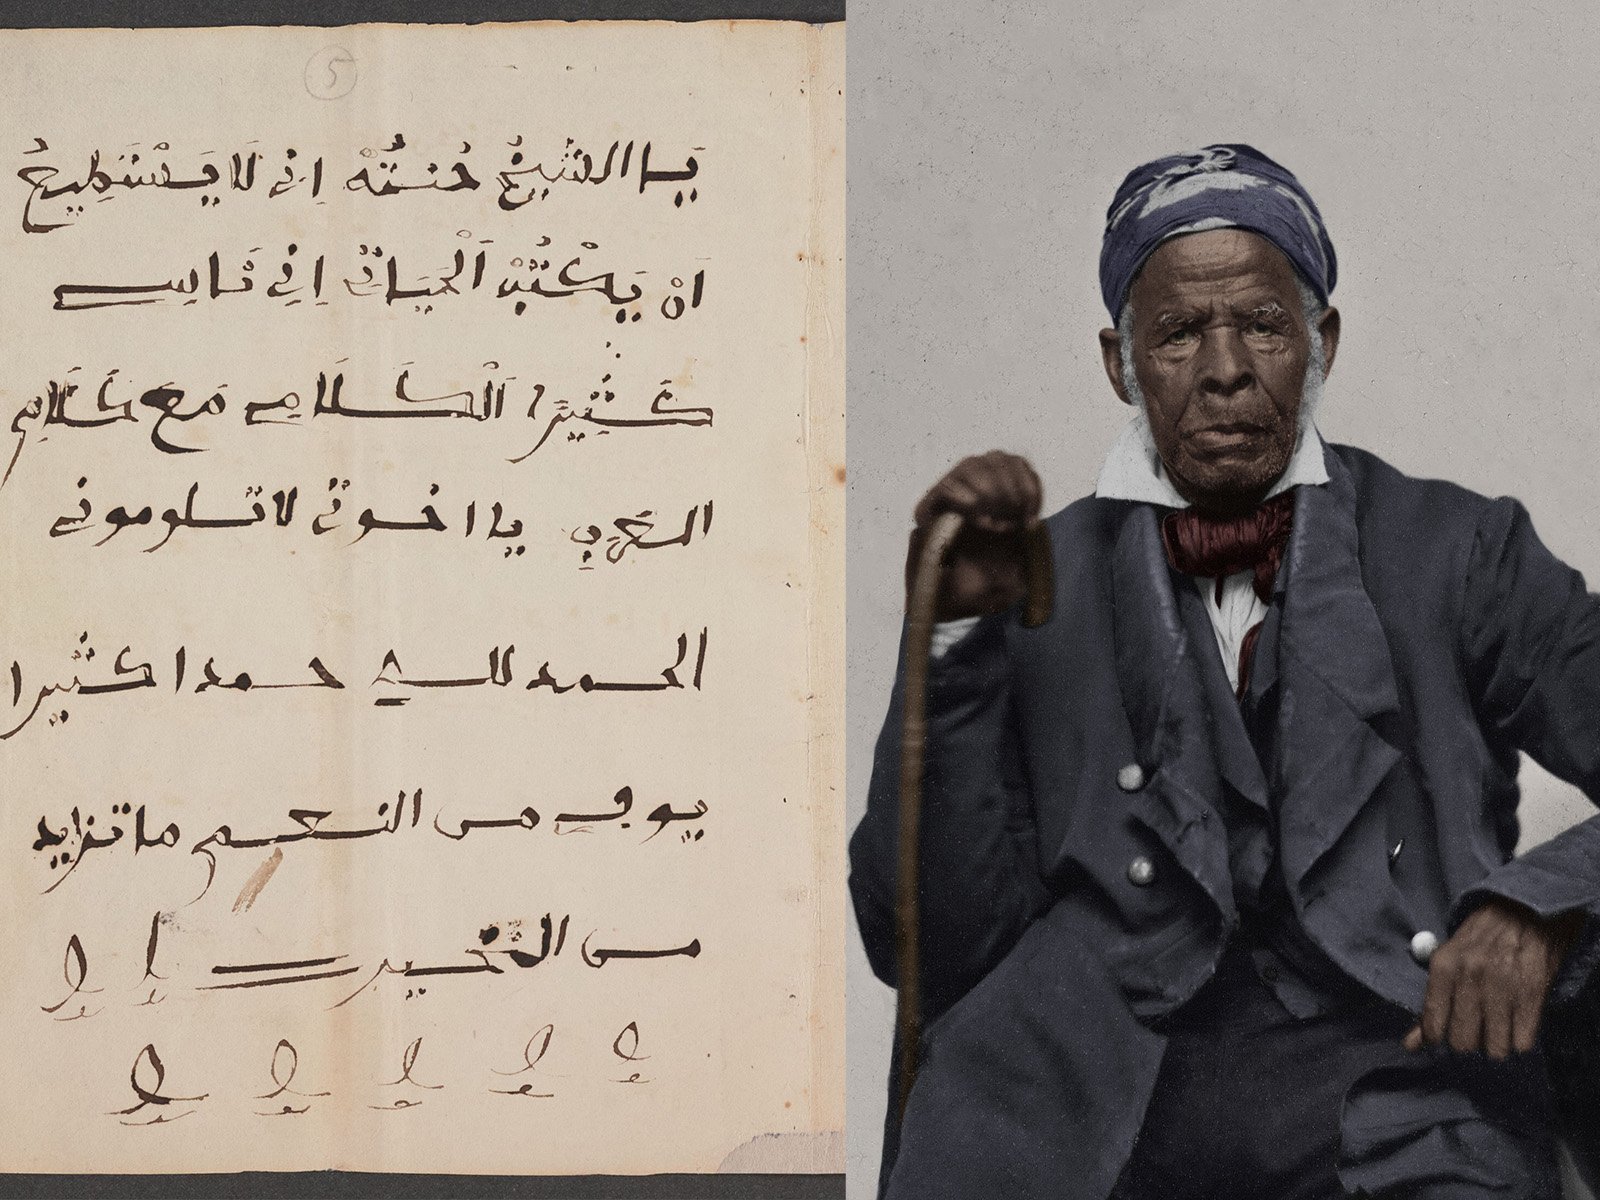 5
يَا الشَّيْخُ حُنتُهْ اِنِي لَا يَسْتَطِيعُ
اَنْ يَكْتُبْ اَلْحَيَاتِي اِنِي نَاسِي
كَثِيرًا اَلْكَلَامِي مَعَ كَلَامِ
العَرَبِ يا اخوتي لا تسلوموني
الحمد للله حمدا كثيرا
يوفي من النعيم ما تزايد
من الخير